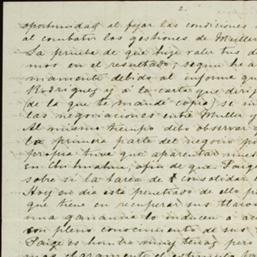 2.
oportunidad al fijar las condiciones
al combatir las gestiones de Muller
La prueba de que hize valer tus d
mos en el resultado; segun he a
mamente debido al informe qu
Rodriguez y á la carta que diri
(de la que te mandé copia) se in
las negociaciones entre Muller y
Al mismo tiempo debo observar q
la primera parte del negocio po
peraqui tuve que aparentar mucho
en Honduras, afin de que Paige
sobre si la tarea de consolidar
Hoy en dia esta penetrado de ello p
que tiene en recuperar sus
una ganancia lo inducen á ac
con pleno conocimiento de sus
Paige es hombre muy tenaz pero